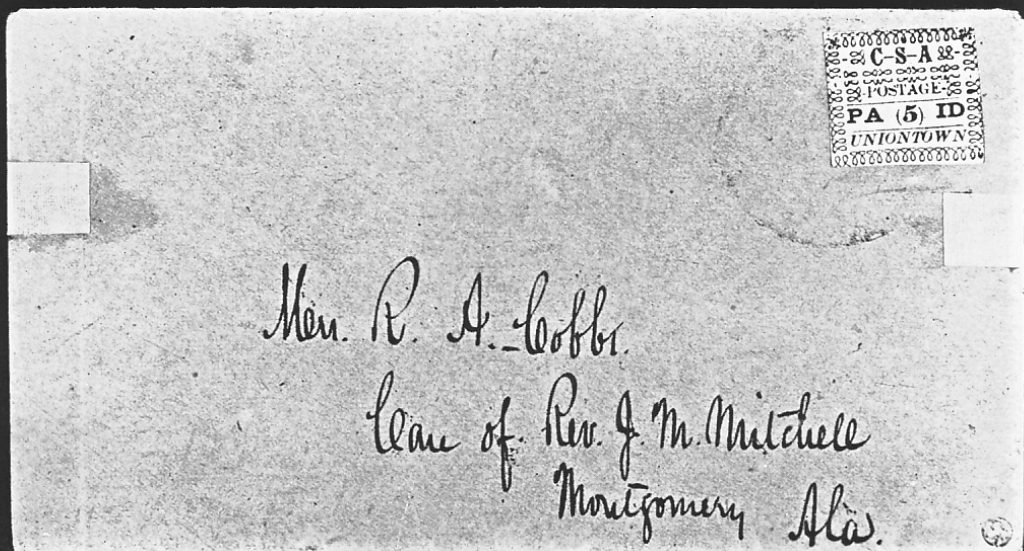 C-S-A
POSTAGE
PA (5) ID
UNIONTOWN
Mrs. R. A. Cobbs.
Care of. Rev. J. M. Mitchell
Montgomery Ala.